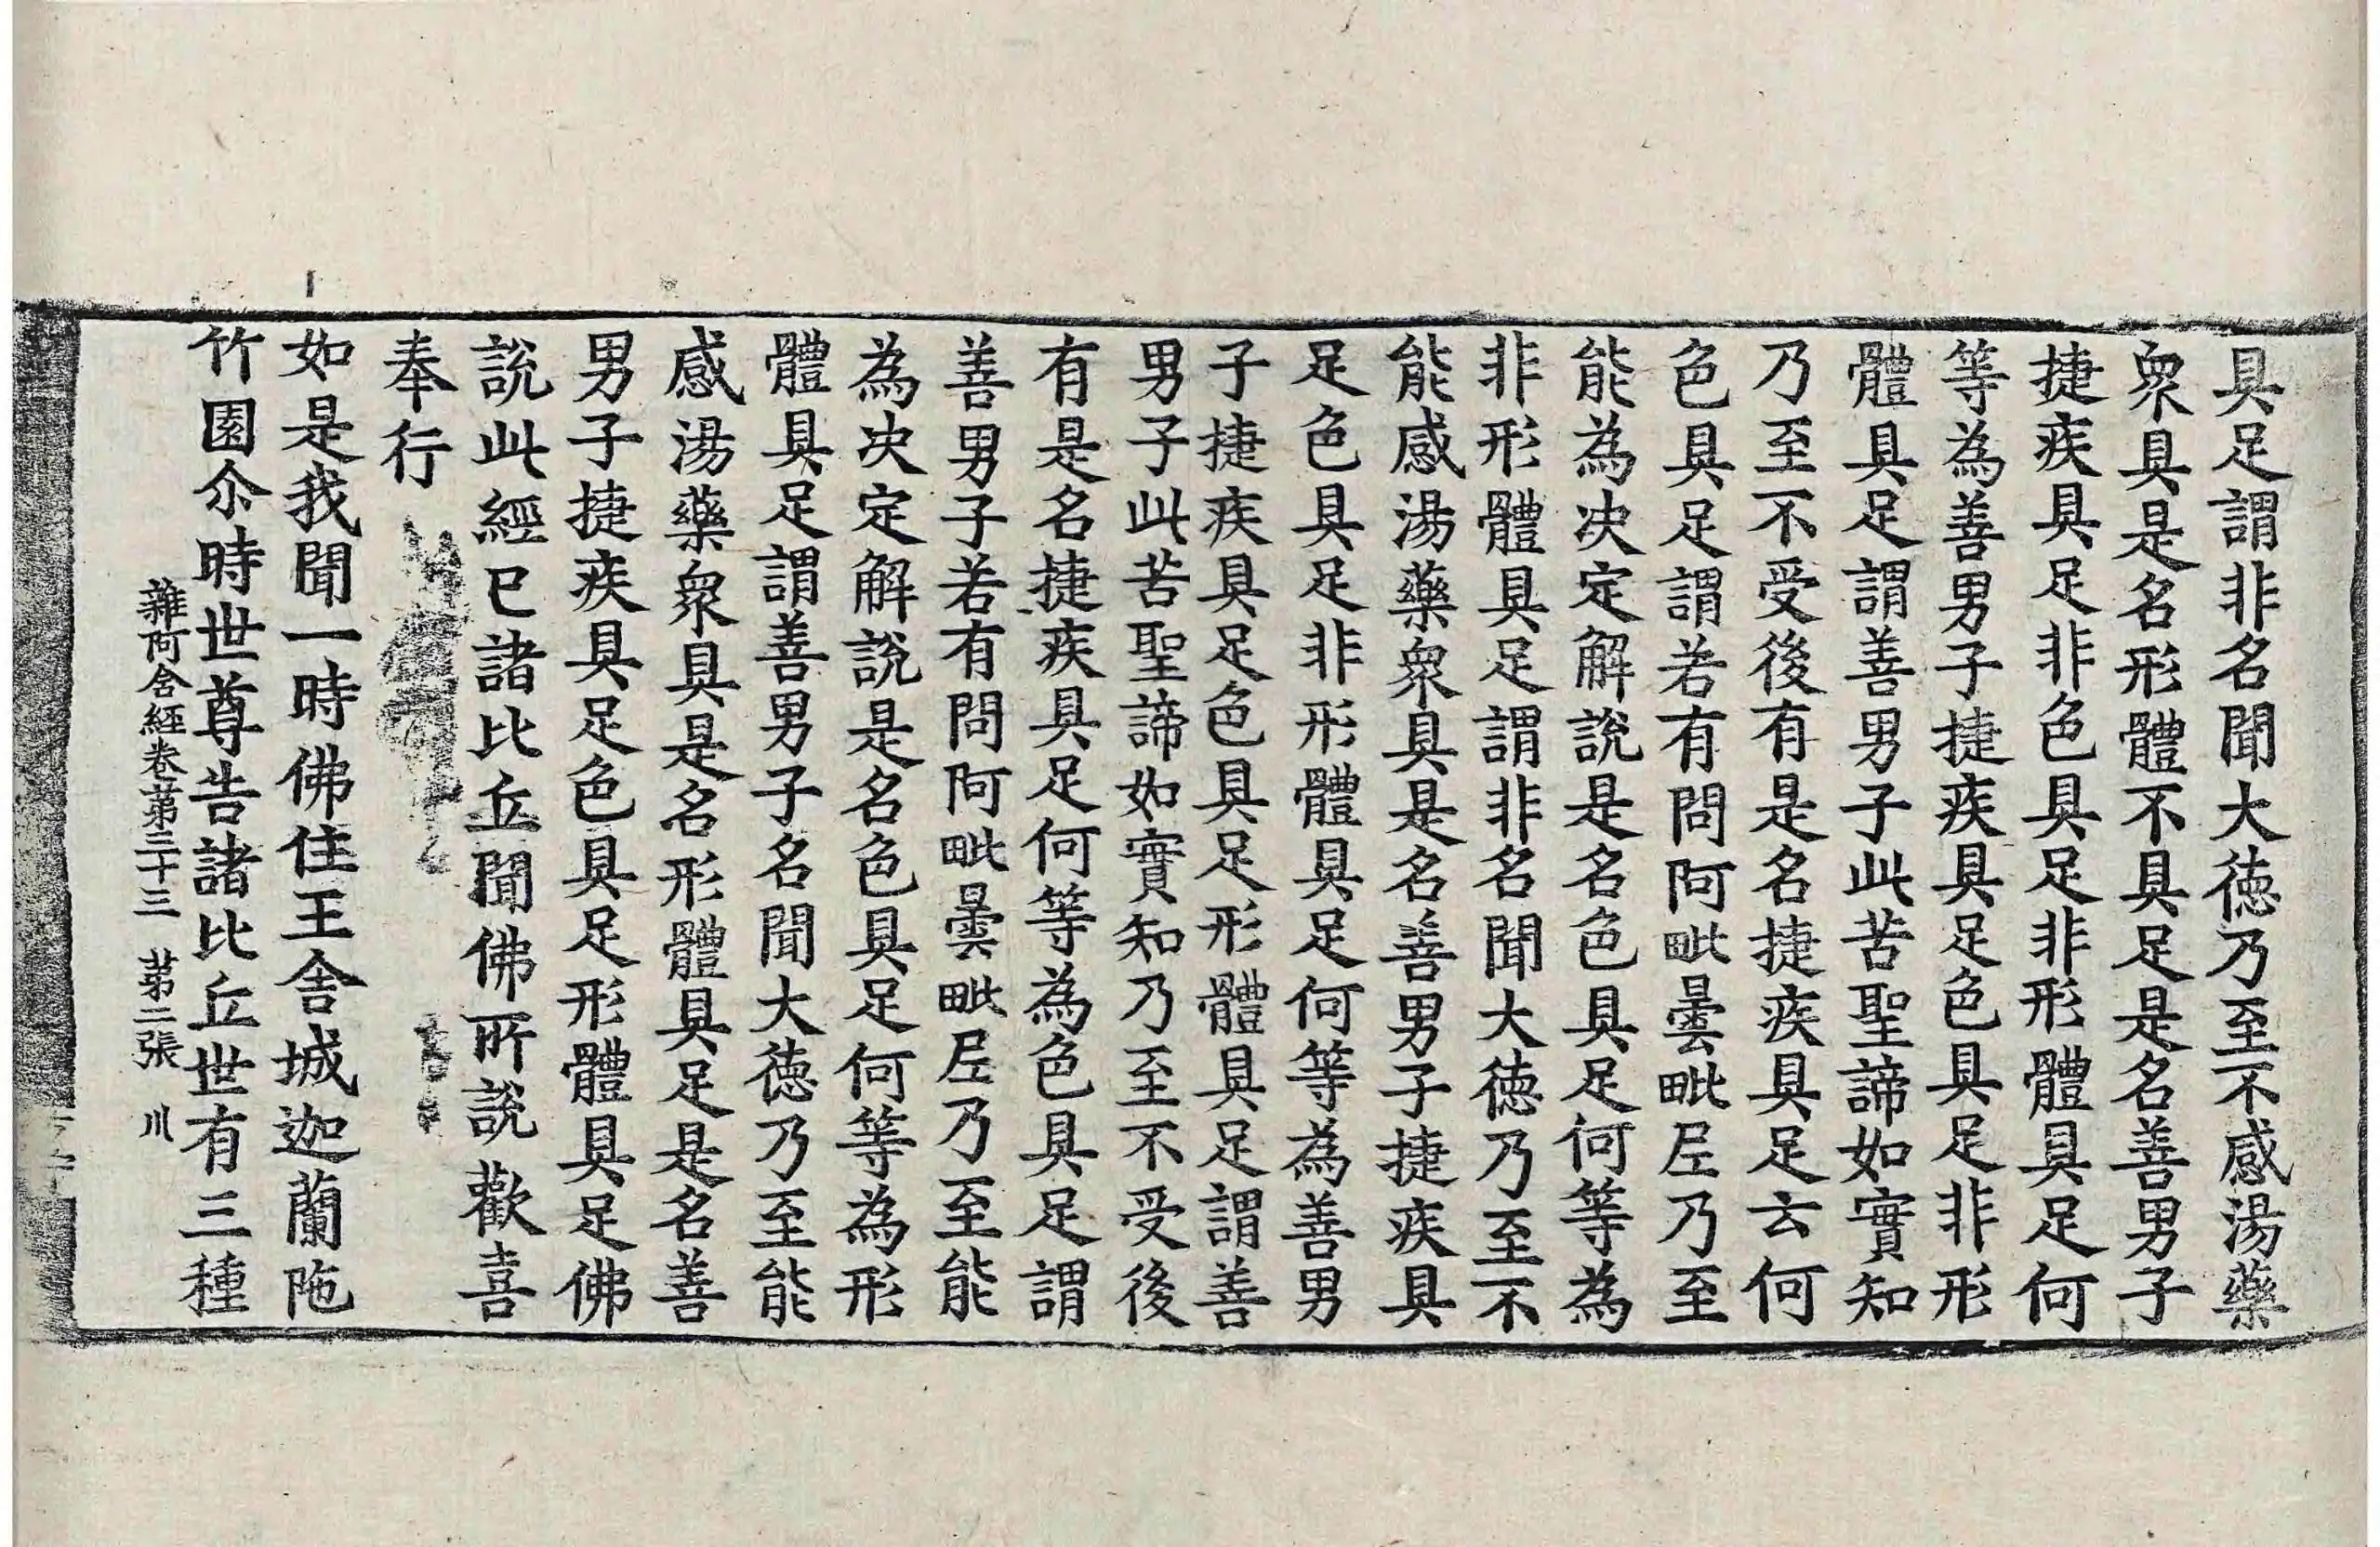 具足謂非名聞大徳乃至不感湯藥
衆具是名形體不具足是名善男子
捷疾具足非色具足非形體具足何
等為善男子捷疾具足色具足非形
體具足謂善男子此苦聖諦如實知
乃至不受後有是名捷疾具足云何
色具足謂若有問阿毗曇毗尼乃至
能為决定解說是名色具足何等為
非形體具足謂非名聞大徳乃至不
能感湯藥衆具是名善男子捷疾具
足色具足非形體具足何等為善男
子捷疾具足色具足形體具足謂善
男子此苦聖諦如實知乃至不受後
有是名捷疾具足何等為色具足謂
善男子若有問阿毗曇毗尼乃至能
為决定解說是名色具足何等為形
體具足謂善男子名聞大徳乃至能
感湯藥衆具是名形體具足是名善
男子捷疾具足色具足形體具足佛
說此經已諸比丘聞佛所說歡喜
奉行
如是我聞一時佛住王舍城迦蘭陁
竹園尒時世尊告諸比丘世有三種
雜阿含經卷第三十三 第二張 川